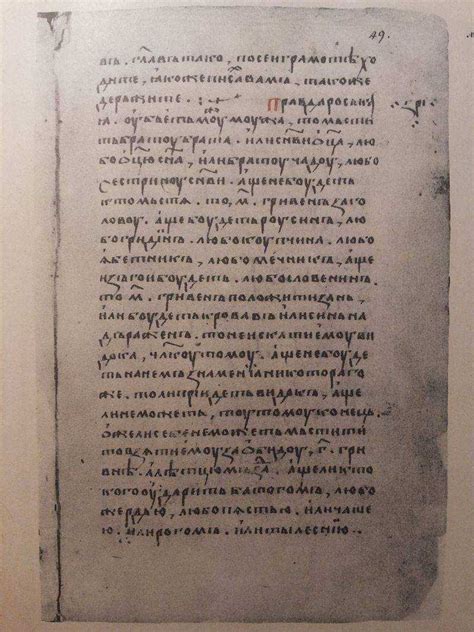 49.
въ, гл҃въ тако, по сеи грамотѣ хо
дите, ꙗкоже писа вамъ, такоже
держите . :~ Правда роськаꙗ
а . оубьеть моужь моужа, то мьсти
ть братоу брата, или сн҃ви ѡц҃а, лю
бо ѡц҃ю сн҃а, или братоу чадоу, любо
сестриноу сн҃ви . аще не боудеть
кто мьстѧ . то, м҃ . гривенъ за го
ловоу . аще боудеть роусинъ, лю
бо гридинъ . любо коупчина . любо
ꙗбетникъ, любо мечникъ, аще
изъгои боудеть . любо словенинъ .
то м҃ . гривенъ положити за нь,
или боудеть кровавъ или синь на
дъраженъ . то не искати емоу ви
дока, чл҃коу томоу . аще не боуде
ть на немъ знамениꙗ никотораго
же . то ли приидеть видокъ, аще
ли не можеть, тоу томоу конець .
ѡже ли себе не можеть мьстити
то взѧти емоу за ѡбидоу, г҃ . грив
нѣ . а лѣтцю мъзда . аще ли кто
кого оударить батогомъ, любо
жердью, любо пѧстью, или чаше
ю . или рогомъ . или тылеснию .